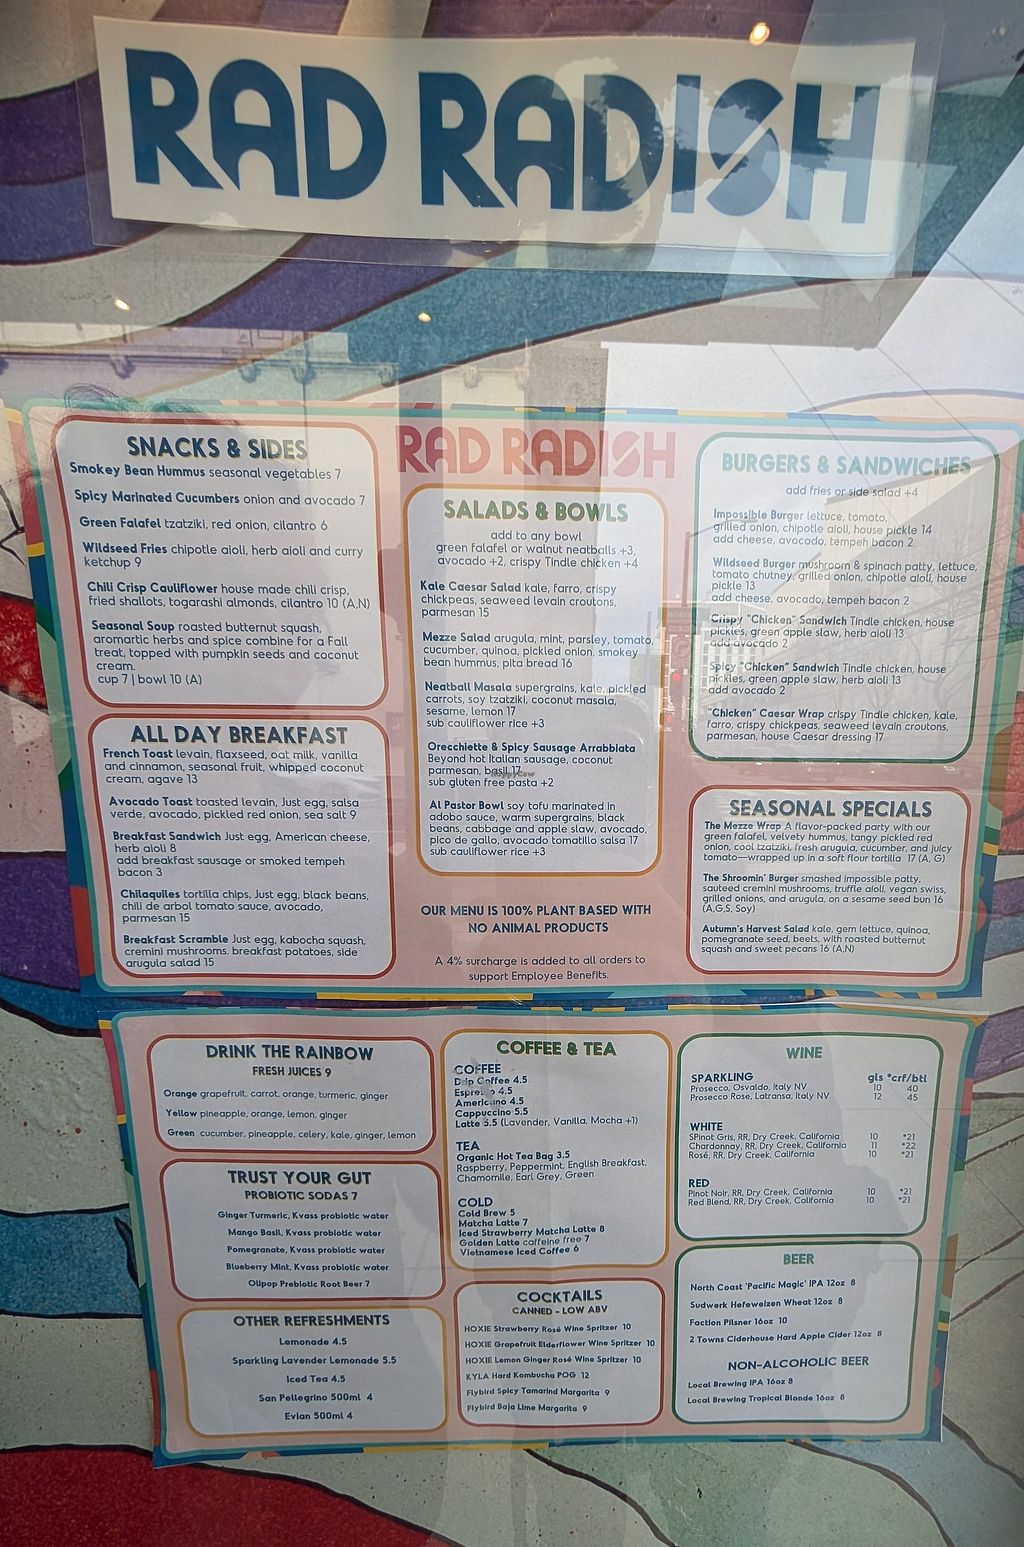 RAD RADISH
SNACKS & SIDES
Smokey Bean Hummus seasonal vegetables 7
Spicy Marinated Cucumbers onion and avocado 7
Green Falafel tzatziki, red onion, cilantro 6
Wildseed Fries chipotle aioli, herb aioli and curry
ketchup 9
Chili Crisp Cauliflower house made chili crisp,
fried shallots, togarashi almonds, cilantro 10 (A,N)
Seasonal Soup roasted butternut squash,
aromartic herbs and spice combine for a Fall
treat, topped with pumpkin seeds and coconut
cream.
cup 7 | bowl 10 (A)
ALL DAY BREAKFAST
French Toast levain, flaxseed, oat milk, vanilla
and cinnamon, seasonal fruit, whipped coconut
cream, agave 13
Avocado Toast toasted levain, Just egg, salsa
verde, avocado, pickled red onion, sea salt 9
Breakfast Sandwich Just egg, American cheese,
herb aioli 8
add breakfast sausage or smoked tempeh
bacon 3
Chilaquiles tortilla chips, Just egg, black beans,
chili de arbol tomato sauce, avocado,
parmesan 15
Breakfast Scramble Just egg, kabocha squash,
cremini mushrooms. breakfast potatoes, side
arugula salad 15
RAD RADISH
SALADS & BOWLS
add to any bowl
green falafel or walnut neatballs +3,
avocado +2, crispy Tindle chicken +4
Kale Caesar Salad kale, farro, crispy
chickpeas, seaweed levain croutons,
parmesan 15
Mezze Salad arugula, mint, parsley, tomato,
cucumber, quinoa, pickled onion, smokey
bean hummus, pita bread 16
Neatball Masala supergrains, kale, pickled
carrots, soy tzatziki, coconut masala,
sesame, lemon 17
sub cauliflower rice +3
Orecchiette & Spicy Sausage Arrabbiata
Beyond hot Italian sausage, coconut
parmesan, basil 17
sub gluten free pasta +2
Al Pastor Bowl soy tofu marinated in
adobo sauce, warm supergrains, black
beans, cabbage and apple slaw, avocado,
pico de gallo, avocado tomatillo salsa 17
sub cauliflower rice +3
OUR MENU IS 100% PLANT BASED WITH
NO ANIMAL PRODUCTS
A 4% surcharge is added to all orders to
support Employee Benefits.
BURGERS & SANDWICHES
add fries or side salad +4
Impossible Burger lettuce, tomato,
grilled onion, chipotle aioli, house pickle 14
add cheese, avocado, tempeh bacon 2
Wildseed Burger mushroom & spinach patty, lettuce,
tomato chutney, grilled onion, chipotle aioli, house
pickle 13
add cheese, avocado, tempeh bacon 2
Crispy "Chicken" Sandwich Tindle chicken, house
pickles, green apple slaw, herb aioli 13
add avocado 2
Spicy "Chicken" Sandwich Tindle chicken, house
pickles, green apple slaw, herb aioli 13
add avocado 2
"Chicken" Caesar Wrap crispy Tindle chicken, kale,
farro, crispy chickpeas, seaweed levain croutons,
parmesan, house Caesar dressing 17
SEASONAL SPECIALS
The Mezze Wrap A flavor-packed party with our
green falafel, velvety hummus, tangy pickled red
onion, cool tzatziki, fresh arugula, cucumber, and juicy
tomato—wrapped up in a soft flour tortilla 17 (A, G)
The Shroomin' Burger smashed impossible patty,
sauteed cremini mushrooms, truffle aioli, vegan swiss,
grilled onions, and arugula, on a sesame seed bun 16
(A,G,S, Soy)
Autumn's Harvest Salad kale, gem lettuce, quinoa,
pomegranate seed, beets, with roasted butternut
squash and sweet pecans 16 (A,N)
DRINK THE RAINBOW
FRESH JUICES 9
Orange grapefruit, carrot, orange, turmeric, ginger
Yellow pineapple, orange, lemon, ginger
Green cucumber, pineapple, celery, kale, ginger, lemon
TRUST YOUR GUT
PROBIOTIC SODAS 7
Ginger Turmeric, Kvass probiotic water
Mango Basil, Kvass probiotic water
Pomegranate, Kvass probiotic water
Blueberry Mint, Kvass probiotic water
Olipop Prebiotic Root Beer 7
OTHER REFRESHMENTS
Lemonade 4.5
Sparkling Lavender Lemonade 5.5
Iced Tea 4.5
San Pellegrino 500ml 4
Evian 500ml 4
COFFEE & TEA
COFFEE
Drip Coffee 4.5
Espresso 4.5
Americano 4.5
Cappuccino 5.5
Latte 5.5 (Lavender, Vanilla, Mocha +1)
TEA
Organic Hot Tea Bag 3.5
Raspberry, Peppermint, English Breakfast,
Chamomile, Earl Grey, Green
COLD
Cold Brew 5
Matcha Latte 7
Iced Strawberry Matcha Latte 8
Golden Latte caffeine free 7
Vietnamese Iced Coffee 6
COCKTAILS
CANNED - LOW ABV
HOXIE Strawberry Rosé Wine Spritzer 10
HOXIE Grapefruit Elderflower Wine Spritzer 10
HOXIE Lemon Ginger Rosé Wine Spritzer 10
KYLA Hard Kombucha POG 12
Flybird Spicy Tamarind Margarita 9
Flybird Baja Lime Margarita 9
WINE
SPARKLING gls *crf/btl
Prosecco, Osvaldo, Italy NV 10 40
Prosecco Rose, Latransa, Italy NV 12 45
WHITE
SPinot Gris, RR, Dry Creek, California 10 *21
Chardonnay, RR, Dry Creek, California 11 *22
Rosé, RR, Dry Creek, California 10 *21
RED
Pinot Noir, RR, Dry Creek, California 10 *21
Red Blend, RR, Dry Creek, California 10 *21
BEER
North Coast 'Pacific Magic' IPA 12oz 8
Sudwerk Hefeweizen Wheat 12oz 8
Faction Pilsner 16oz 10
2 Towns Ciderhouse Hard Apple Cider 12oz 8
NON-ALCOHOLIC BEER
Local Brewing IPA 16oz 8
Local Brewing Tropical Blonde 16oz 8